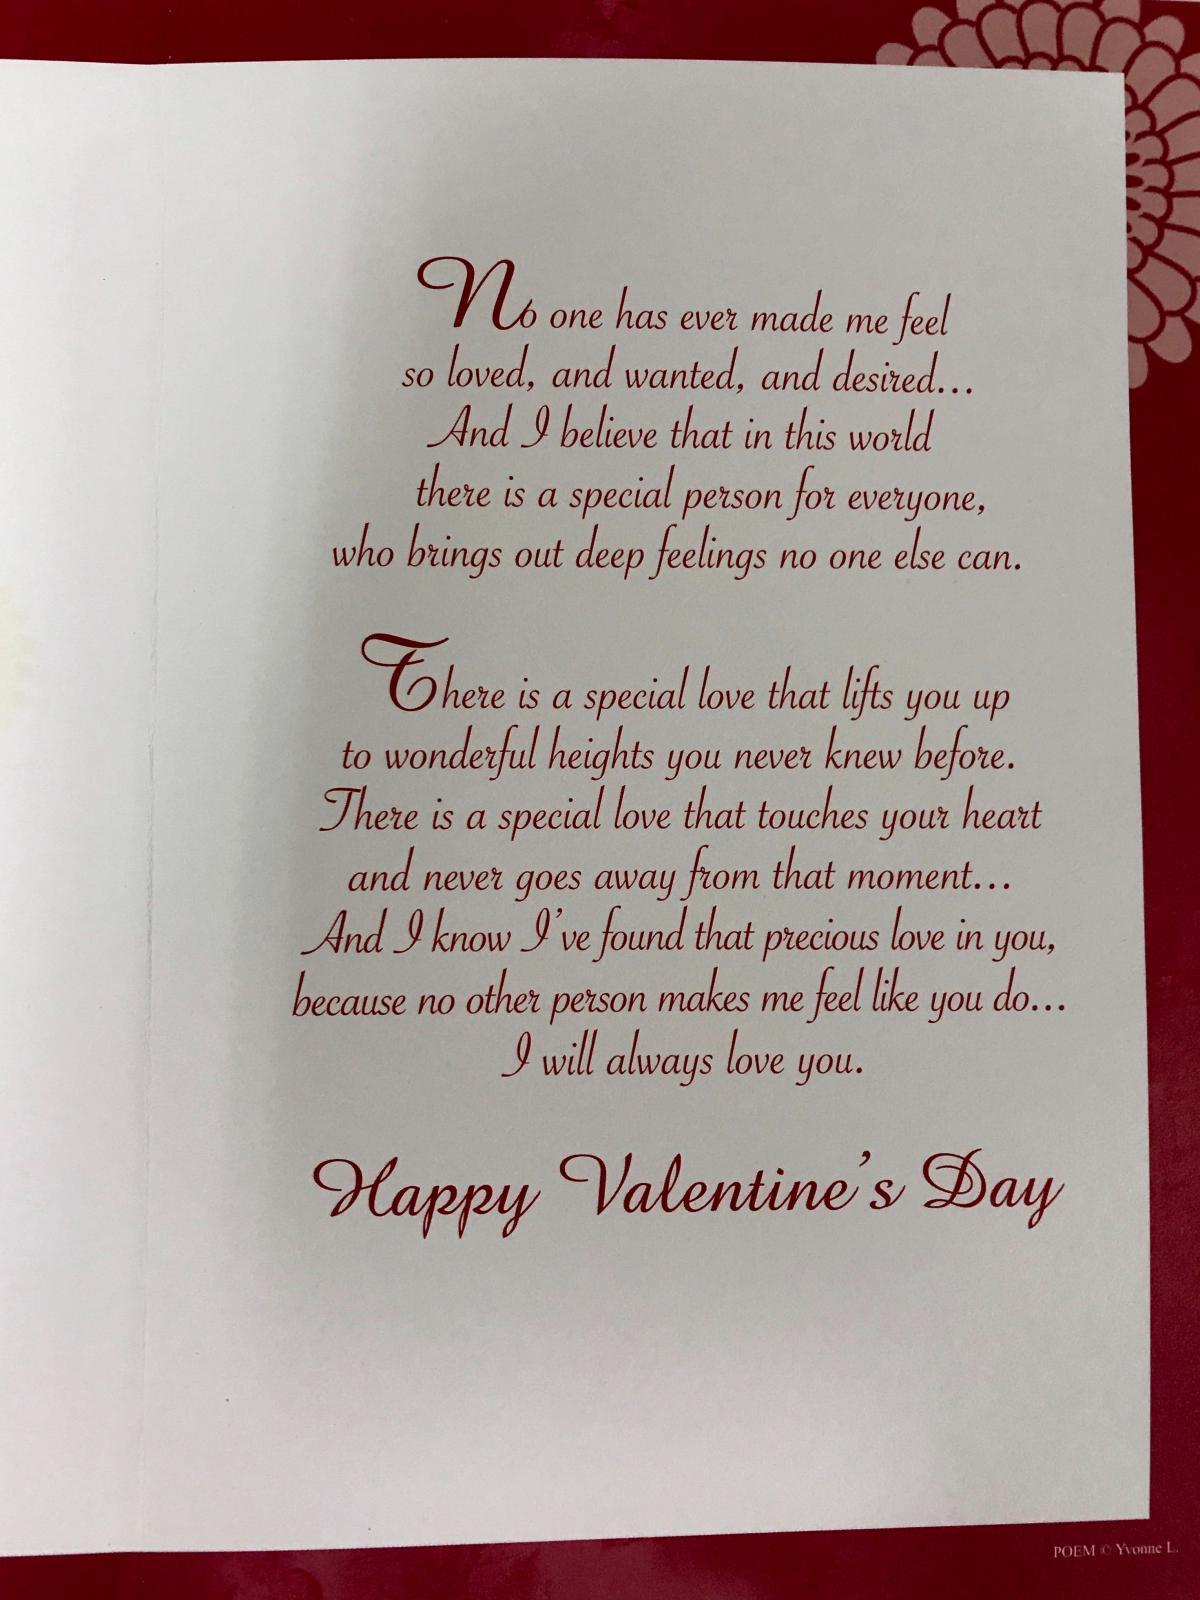 No one has ever made me feel
so loved, and wanted, and desired...
And I believe that in this world
there is a special person for everyone,
who brings out deep feelings no one else can.
There is a special love that lifts you up
to wonderful heights you never knew before.
There is a special love that touches your heart
and never goes away from that moment...
And I know I've found that precious love in you,
because no other person makes me feel like you do...
I will always love you.
Happy Valentine's Day
POEM © Yvonne L.